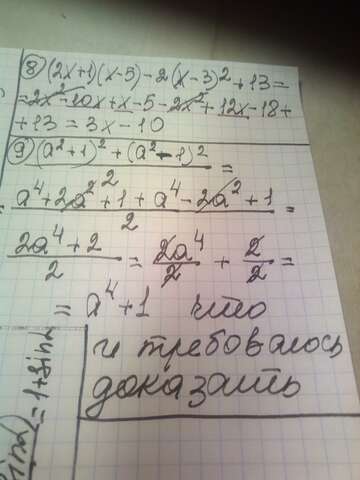 8) (2x+1)(x-5)-2(x-3)²+13=
=2x²-10x+x-5-2x²+12x-18+
+13=3x-10
9) (a²+1)²+(a²-1)²
2 =
a⁴+2a²+1+a⁴-2a²+1
2 =
2a⁴+2
2 = 2a⁴
2 + 2
2 =
= a⁴+1 что
и требовалось
доказать
=1+sinx